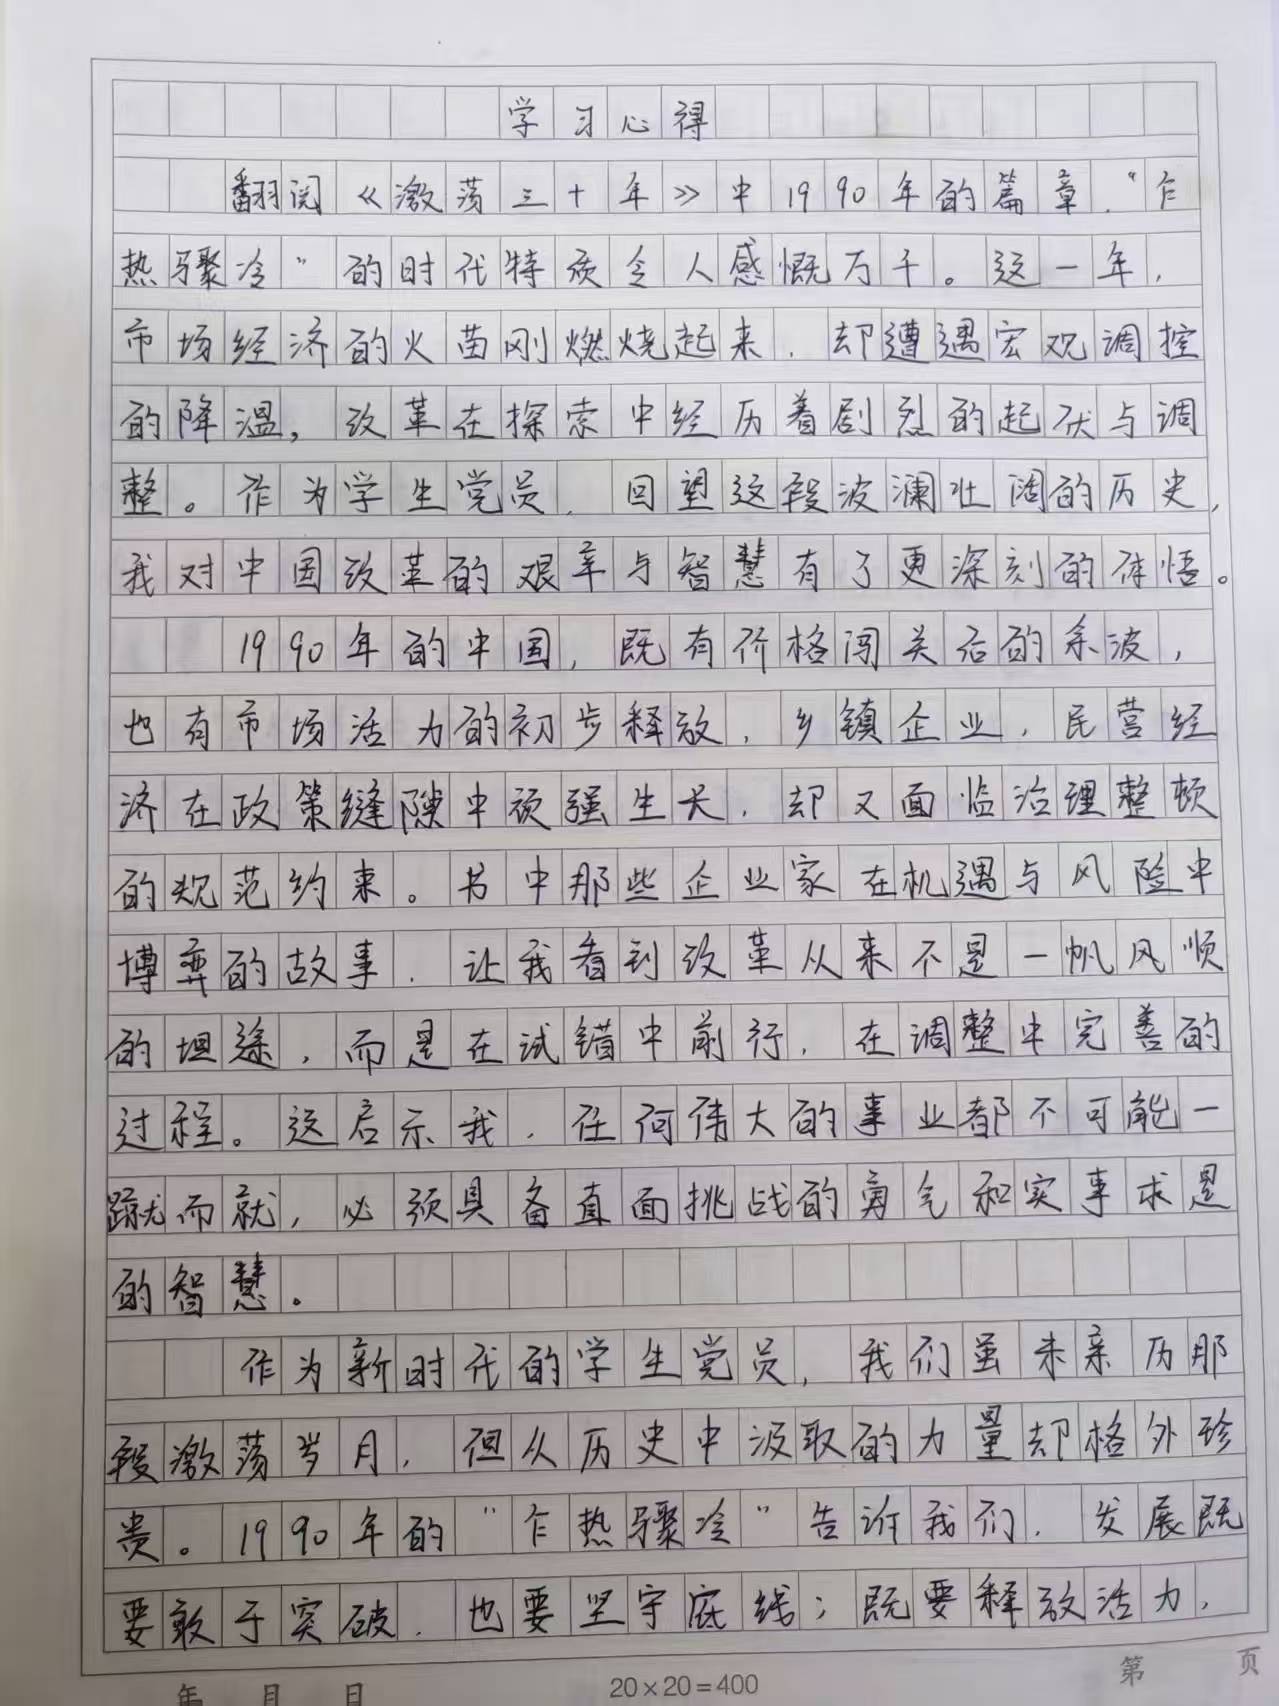 学习心得
翻阅《激荡三十年》中1990年的篇章，“乍
热骤冷”的时代特质令人感慨万千。这一年，
市场经济的火苗刚燃烧起来，却遭遇宏观调控
的降温，改革在探索中经历着剧烈的起伏与调
整。作为学生党员，回望这段波澜壮阔的历史，
我对中国改革的艰辛与智慧有了更深刻的体悟。
1990年的中国，既有价格闯关后的余波，
也有市场活力的初步释放，乡镇企业，民营经
济在政策缝隙中顽强生长，却又面临治理整顿
的规范约束。书中那些企业家在机遇与风险中
博弈的故事，让我看到改革从来不是一帆风顺
的坦途，而是在试错中前行，在调整中完善的
过程。这启示我，任何伟大的事业都不可能一
蹴而就，必须具备直面挑战的勇气和实事求是
的智慧。
作为新时代的学生党员，我们虽未亲历那
段激荡岁月，但从历史中汲取的力量却格外珍
贵。1990年的“乍热骤冷”告诉我们，发展既
要敢于突破，也要坚守底线；既要释放活力，
年 月 日
20×20=400
第 页